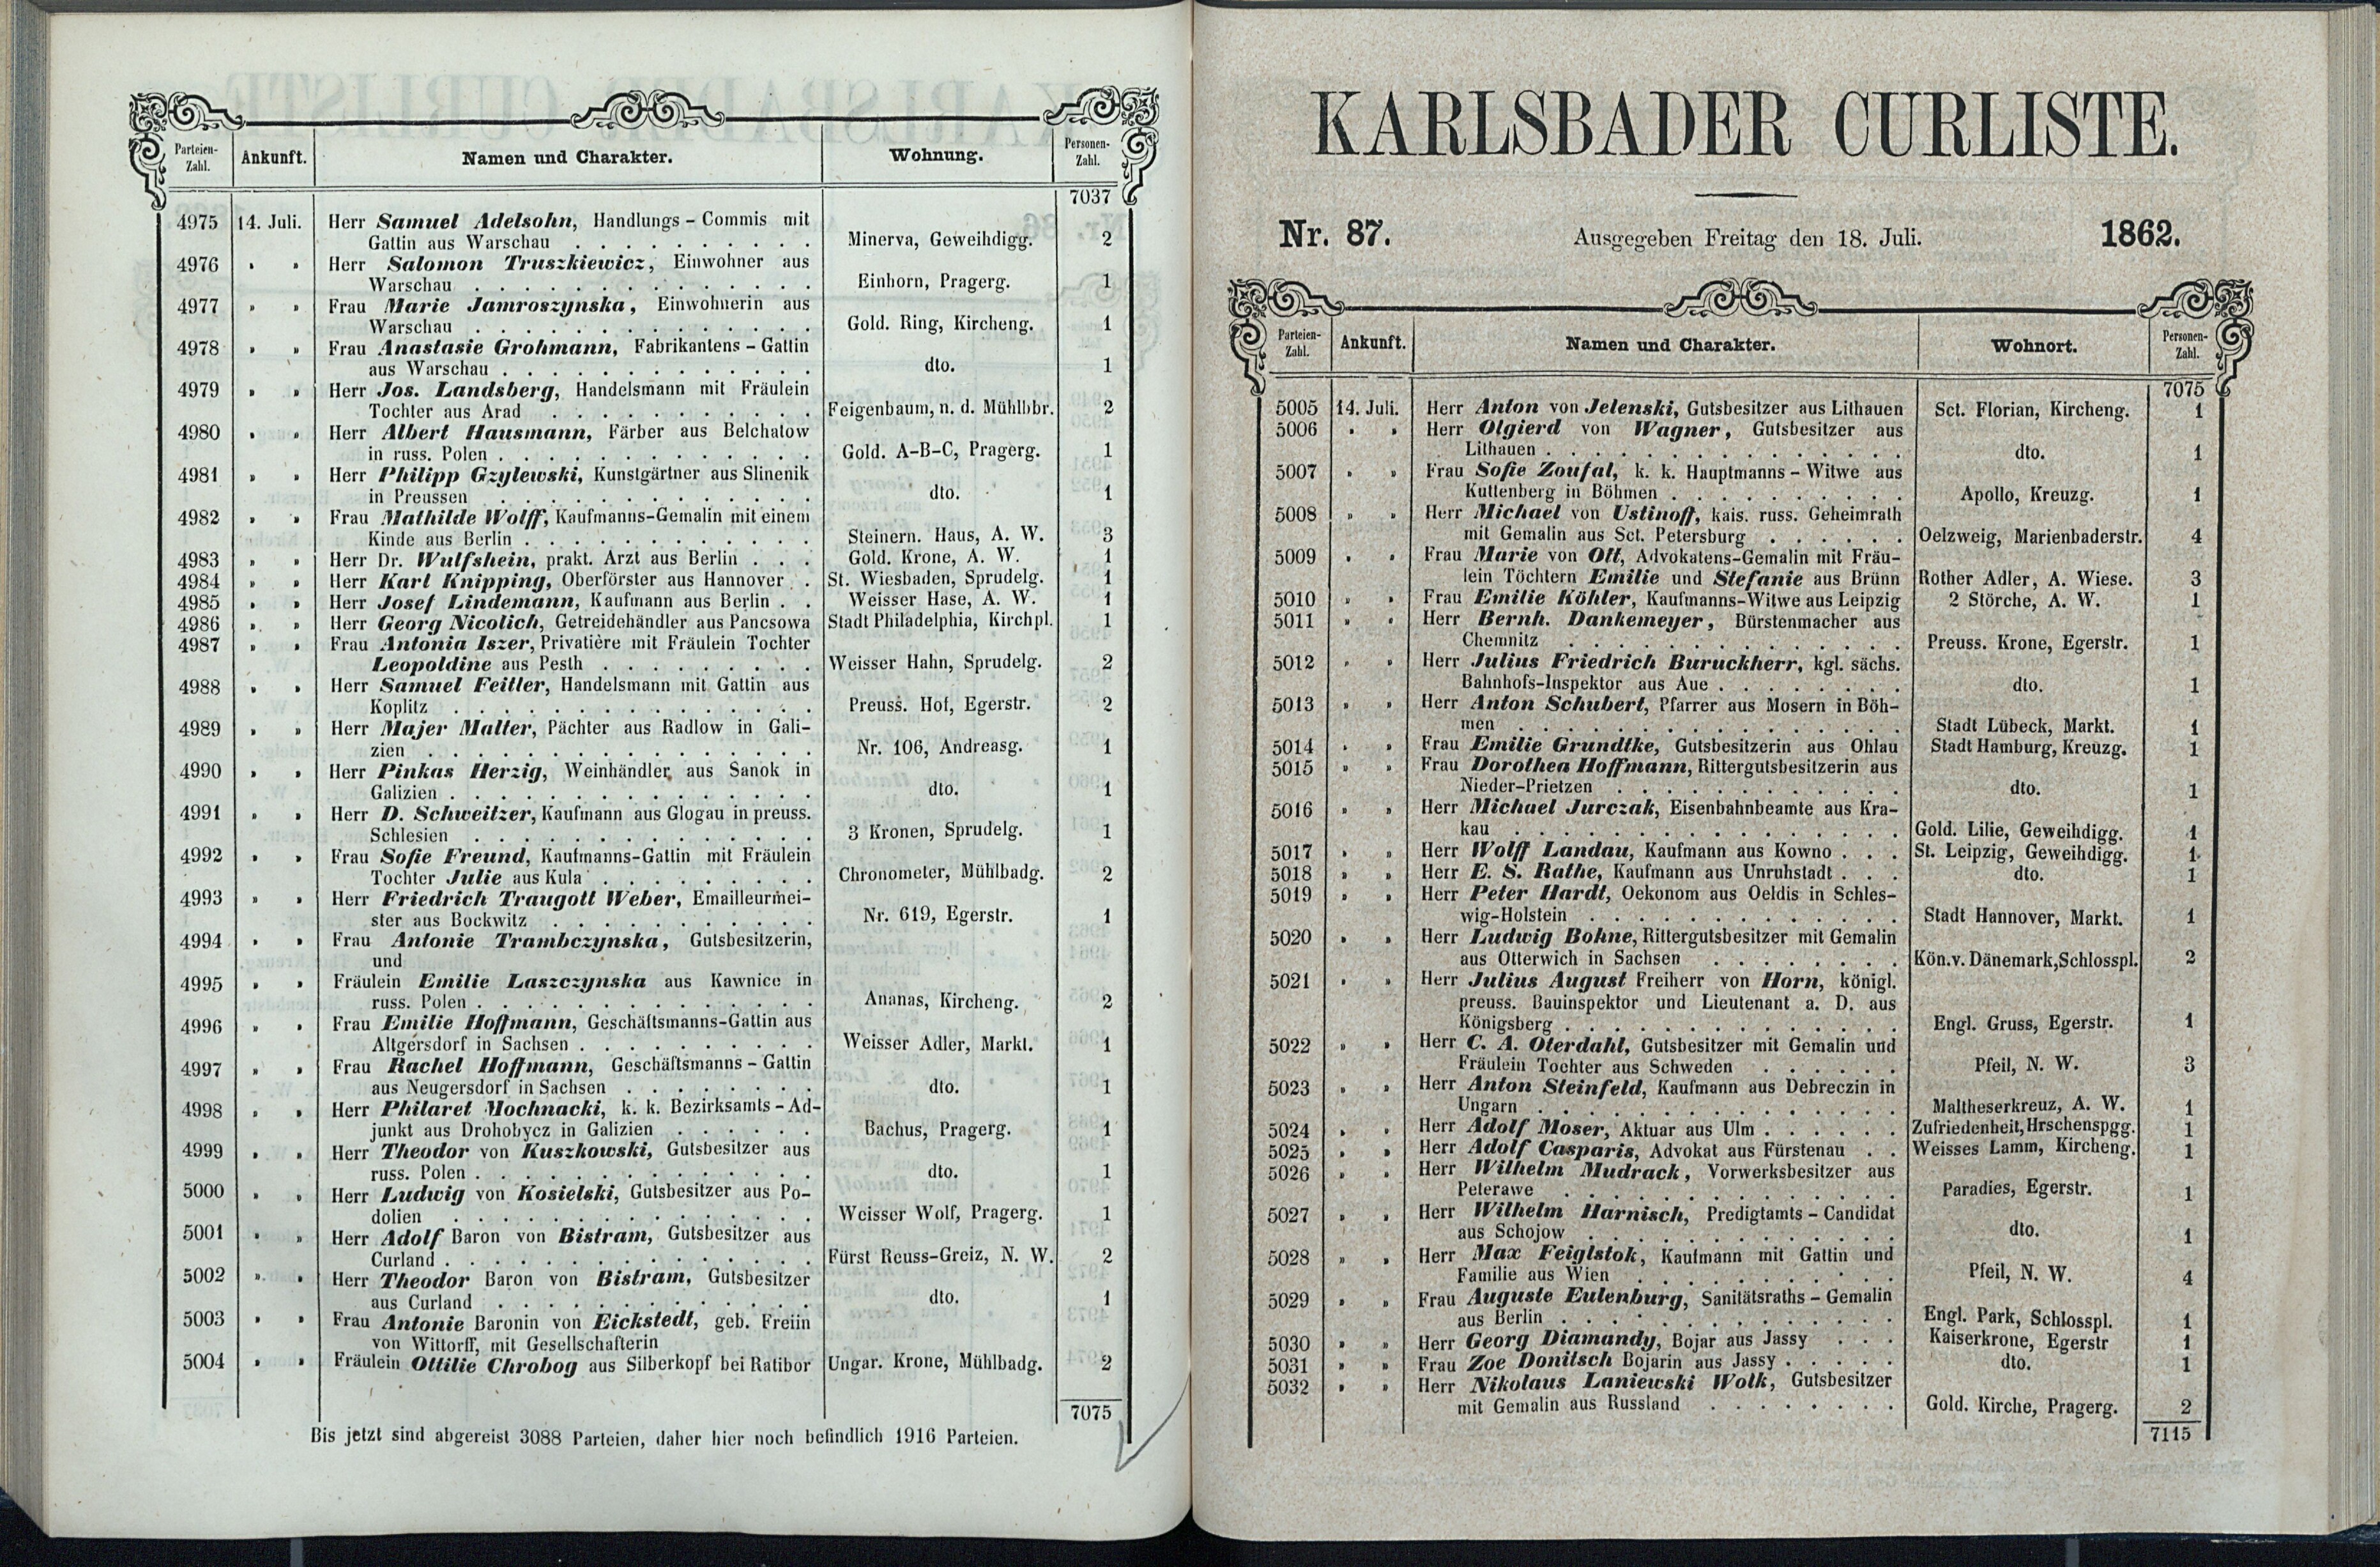 Parteien-Zahl. Ankunft. Namen und Charakter. Wohnung. Personen-Zahl.
7037
4975 14. Juli. Herr Samuel Adelsohn, Handlungs-Commis mit
Gattin aus Warschau . . . . . . . . . . Minerva, Geweihdigg. 2
4976 „ „ Herr Salomon Truszkiewicz, Einwohner aus
Warschau . . . . . . . . . . . . . . Einhorn, Pragerg. 1
4977 „ „ Frau Marie Jamroszynska, Einwohnerin aus
Warschau . . . . . . . . . . . . . . Gold. Ring, Kircheng. 1
4978 „ „ Frau Anastasie Grohmann, Fabrikantens-Gattin
aus Warschau . . . . . . . . . . . . . dto. 1
4979 „ „ Herr Jos. Landsberg, Handelsmann mit Fräulein
Tochter aus Arad . . . . . . . . . . . Feigenbaum, n. d. Mühlbbr. 2
4980 „ „ Herr Albert Hausmann, Färber aus Belchatow
in russ. Polen . . . . . . . . . . . . . Gold. A-B-C, Pragerg. 1
4981 „ „ Herr Philipp Gzylewski, Kunstgärtner aus Slinenik
in Preussen . . . . . . . . . . . . . dto. 1
4982 „ „ Frau Mathilde Wolff, Kaufmanns-Gemalin mit einem
Kinde aus Berlin . . . . . . . . . . . . Steinern. Haus, A. W. 3
4983 „ „ Herr Dr. Wulfshein, prakt. Arzt aus Berlin . . . Gold. Krone, A. W. 1
4984 „ „ Herr Karl Knipping, Oberförster aus Hannover . St. Wiesbaden, Sprudelg. 1
4985 „ „ Herr Josef Lindemann, Kaufmann aus Berlin . . Weisser Hase, A. W. 1
4986 „ „ Herr Georg Nicolich, Getreidehändler aus Pancsowa Stadt Philadelphia, Kirchpl. 1
4987 „ „ Frau Antonia Iszer, Privatière mit Fräulein Tochter
Leopoldine aus Pesth . . . . . . . . . Weisser Hahn, Sprudelg. 2
4988 „ „ Herr Samuel Feitler, Handelsmann mit Gattin aus
Koplitz . . . . . . . . . . . . . . . Preuss. Hof, Egerstr. 2
4989 „ „ Herr Majer Malter, Pächter aus Radlow in Gali-
zien . . . . . . . . . . . . . . . . Nr. 106, Andreasg. 1
4990 „ „ Herr Pinkas Herzig, Weinhändler aus Sanok in
Galizien . . . . . . . . . . . . . . . dto. 1
4991 „ „ Herr D. Schweitzer, Kaufmann aus Glogau in preuss.
Schlesien . . . . . . . . . . . . . . 3 Kronen, Sprudelg. 1
4992 „ „ Frau Sofie Freund, Kaufmanns-Gattin mit Fräulein
Tochter Julie aus Kula . . . . . . . . . Chronometer, Mühlbadg. 2
4993 „ „ Herr Friedrich Traugott Weber, Emailleurmei-
ster aus Bockwitz . . . . . . . . . . . Nr. 619, Egerstr. 1
4994 „ „ Frau Antonie Trambczynska, Gutsbesitzerin,
und
4995 „ „ Fräulein Emilie Laszczynska aus Kawnice in
russ. Polen . . . . . . . . . . . . . . Ananas, Kircheng. 2
4996 „ „ Frau Emilie Hoffmann, Geschäftsmanns-Gattin aus
Altgersdorf in Sachsen . . . . . . . . . . Weisser Adler, Markt. 1
4997 „ „ Frau Rachel Hoffmann, Geschäftsmanns-Gattin
aus Neugersdorf in Sachsen . . . . . . . . dto. 1
4998 „ „ Herr Philaret Mochnacki, k. k. Bezirksamts-Ad-
junkt aus Drohobycz in Galizien . . . . . . Bachus, Pragerg. 1
4999 „ „ Herr Theodor von Kuszkowski, Gutsbesitzer aus
russ. Polen . . . . . . . . . . . . . . dto. 1
5000 „ „ Herr Ludwig von Kosielski, Gutsbesitzer aus Po-
dolien . . . . . . . . . . . . . . . Weisser Wolf, Pragerg. 1
5001 „ „ Herr Adolf Baron von Bistram, Gutsbesitzer aus
Curland . . . . . . . . . . . . . . . Fürst Reuss-Greiz, N. W. 2
5002 „ „ Herr Theodor Baron von Bistram, Gutsbesitzer
aus Curland . . . . . . . . . . . . . dto. 1
5003 „ „ Frau Antonie Baronin von Eickstedt, geb. Freiin
von Wittorff, mit Gesellschafterin
5004 „ „ Fräulein Ottilie Chrobog aus Silberkopf bei Ratibor Ungar. Krone, Mühlbadg. 2
7075
Bis jetzt sind abgereist 3088 Parteien, daher hier noch befindlich 1916 Parteien.
KARLSBADER CURLISTE.
Nr. 87. Ausgegeben Freitag den 18. Juli. 1862.
Parteien-Zahl. Ankunft. Namen und Charakter. Wohnort. Personen-Zahl.
7075
5005 14. Juli. Herr Anton von Jelenski, Gutsbesitzer aus Lithauen Sct. Florian, Kircheng. 1
5006 „ „ Herr Olgierd von Wagner, Gutsbesitzer aus
Lithauen . . . . . . . . . . . . . . . dto. 1
5007 „ „ Frau Sofie Zoufal, k. k. Hauptmanns-Witwe aus
Kuttenberg in Böhmen . . . . . . . . . . Apollo, Kreuzg. 1
5008 „ „ Herr Michael von Ustinoff, kais. russ. Geheimrath
mit Gemalin aus Sct. Petersburg . . . . . . Oelzweig, Marienbaderstr. 4
5009 „ „ Frau Marie von Ott, Advokatens-Gemalin mit Fräu-
lein Töchtern Emilie und Stefanie aus Brünn Rother Adler, A. Wiese. 3
5010 „ „ Frau Emilie Köhler, Kaufmanns-Witwe aus Leipzig 2 Störche, A. W. 1
5011 „ „ Herr Bernh. Dankemeyer, Bürstenmacher aus
Chemnitz . . . . . . . . . . . . . . Preuss. Krone, Egerstr. 1
5012 „ „ Herr Julius Friedrich Buruckherr, kgl. sächs.
Bahnhofs-Inspektor aus Aue . . . . . . . . dto. 1
5013 „ „ Herr Anton Schubert, Pfarrer aus Mosern in Böh-
men . . . . . . . . . . . . . . . . Stadt Lübeck, Markt. 1
5014 „ „ Frau Emilie Grundtke, Gutsbesitzerin aus Ohlau Stadt Hamburg, Kreuzg. 1
5015 „ „ Frau Dorothea Hoffmann, Rittergutsbesitzerin aus
Nieder-Prietzen . . . . . . . . . . . . dto. 1
5016 „ „ Herr Michael Jurczak, Eisenbahnbeamte aus Kra-
kau . . . . . . . . . . . . . . . . Gold. Lilie, Geweihdigg. 1
5017 „ „ Herr Wolff Landau, Kaufmann aus Kowno . . . St. Leipzig, Geweihdigg. 1
5018 „ „ Herr E. S. Rathe, Kaufmann aus Unruhstadt . . . dto. 1
5019 „ „ Herr Peter Hardt, Oekonom aus Oeldis in Schles-
wig-Holstein . . . . . . . . . . . . . Stadt Hannover, Markt. 1
5020 „ „ Herr Ludwig Bohne, Rittergutsbesitzer mit Gemalin
aus Otterwich in Sachsen . . . . . . . . Kön. v. Dänemark, Schlosspl. 2
5021 „ „ Herr Julius August Freiherr von Horn, königl.
preuss. Bauinspektor und Lieutenant a. D. aus
Königsberg . . . . . . . . . . . . . . Engl. Gruss, Egerstr. 1
5022 „ „ Herr C. A. Oterdahl, Gutsbesitzer mit Gemalin und
Fräulein Tochter aus Schweden . . . . . . Pfeil, N. W. 3
5023 „ „ Herr Anton Steinfeld, Kaufmann aus Debreczin in
Ungarn . . . . . . . . . . . . . . . Maltheserkreuz, A. W. 1
5024 „ „ Herr Adolf Moser, Aktuar aus Ulm . . . . . . Zufriedenheit, Hrschenspgg. 1
5025 „ „ Herr Adolf Casparis, Advokat aus Fürstenau . . Weisses Lamm, Kircheng. 1
5026 „ „ Herr Wilhelm Mudrack, Vorwerksbesitzer aus
Peterawe . . . . . . . . . . . . . . Paradies, Egerstr. 1
5027 „ „ Herr Wilhelm Harnisch, Predigtamts-Candidat
aus Schojow . . . . . . . . . . . . . dto. 1
5028 „ „ Herr Max Feiglstok, Kaufmann mit Gattin und
Familie aus Wien . . . . . . . . . . . Pfeil, N. W. 4
5029 „ „ Frau Auguste Eulenburg, Sanitätsraths-Gemalin
aus Berlin . . . . . . . . . . . . . . Engl. Park, Schlosspl. 1
5030 „ „ Herr Georg Diamandy, Bojar aus Jassy . . . Kaiserkrone, Egerstr 1
5031 „ „ Frau Zoe Donitsch Bojarin aus Jassy . . . . . dto. 1
5032 „ „ Herr Nikolaus Laniewski Wolk, Gutsbesitzer
mit Gemalin aus Russland . . . . . . . . Gold. Kirche, Pragerg. 2
7115